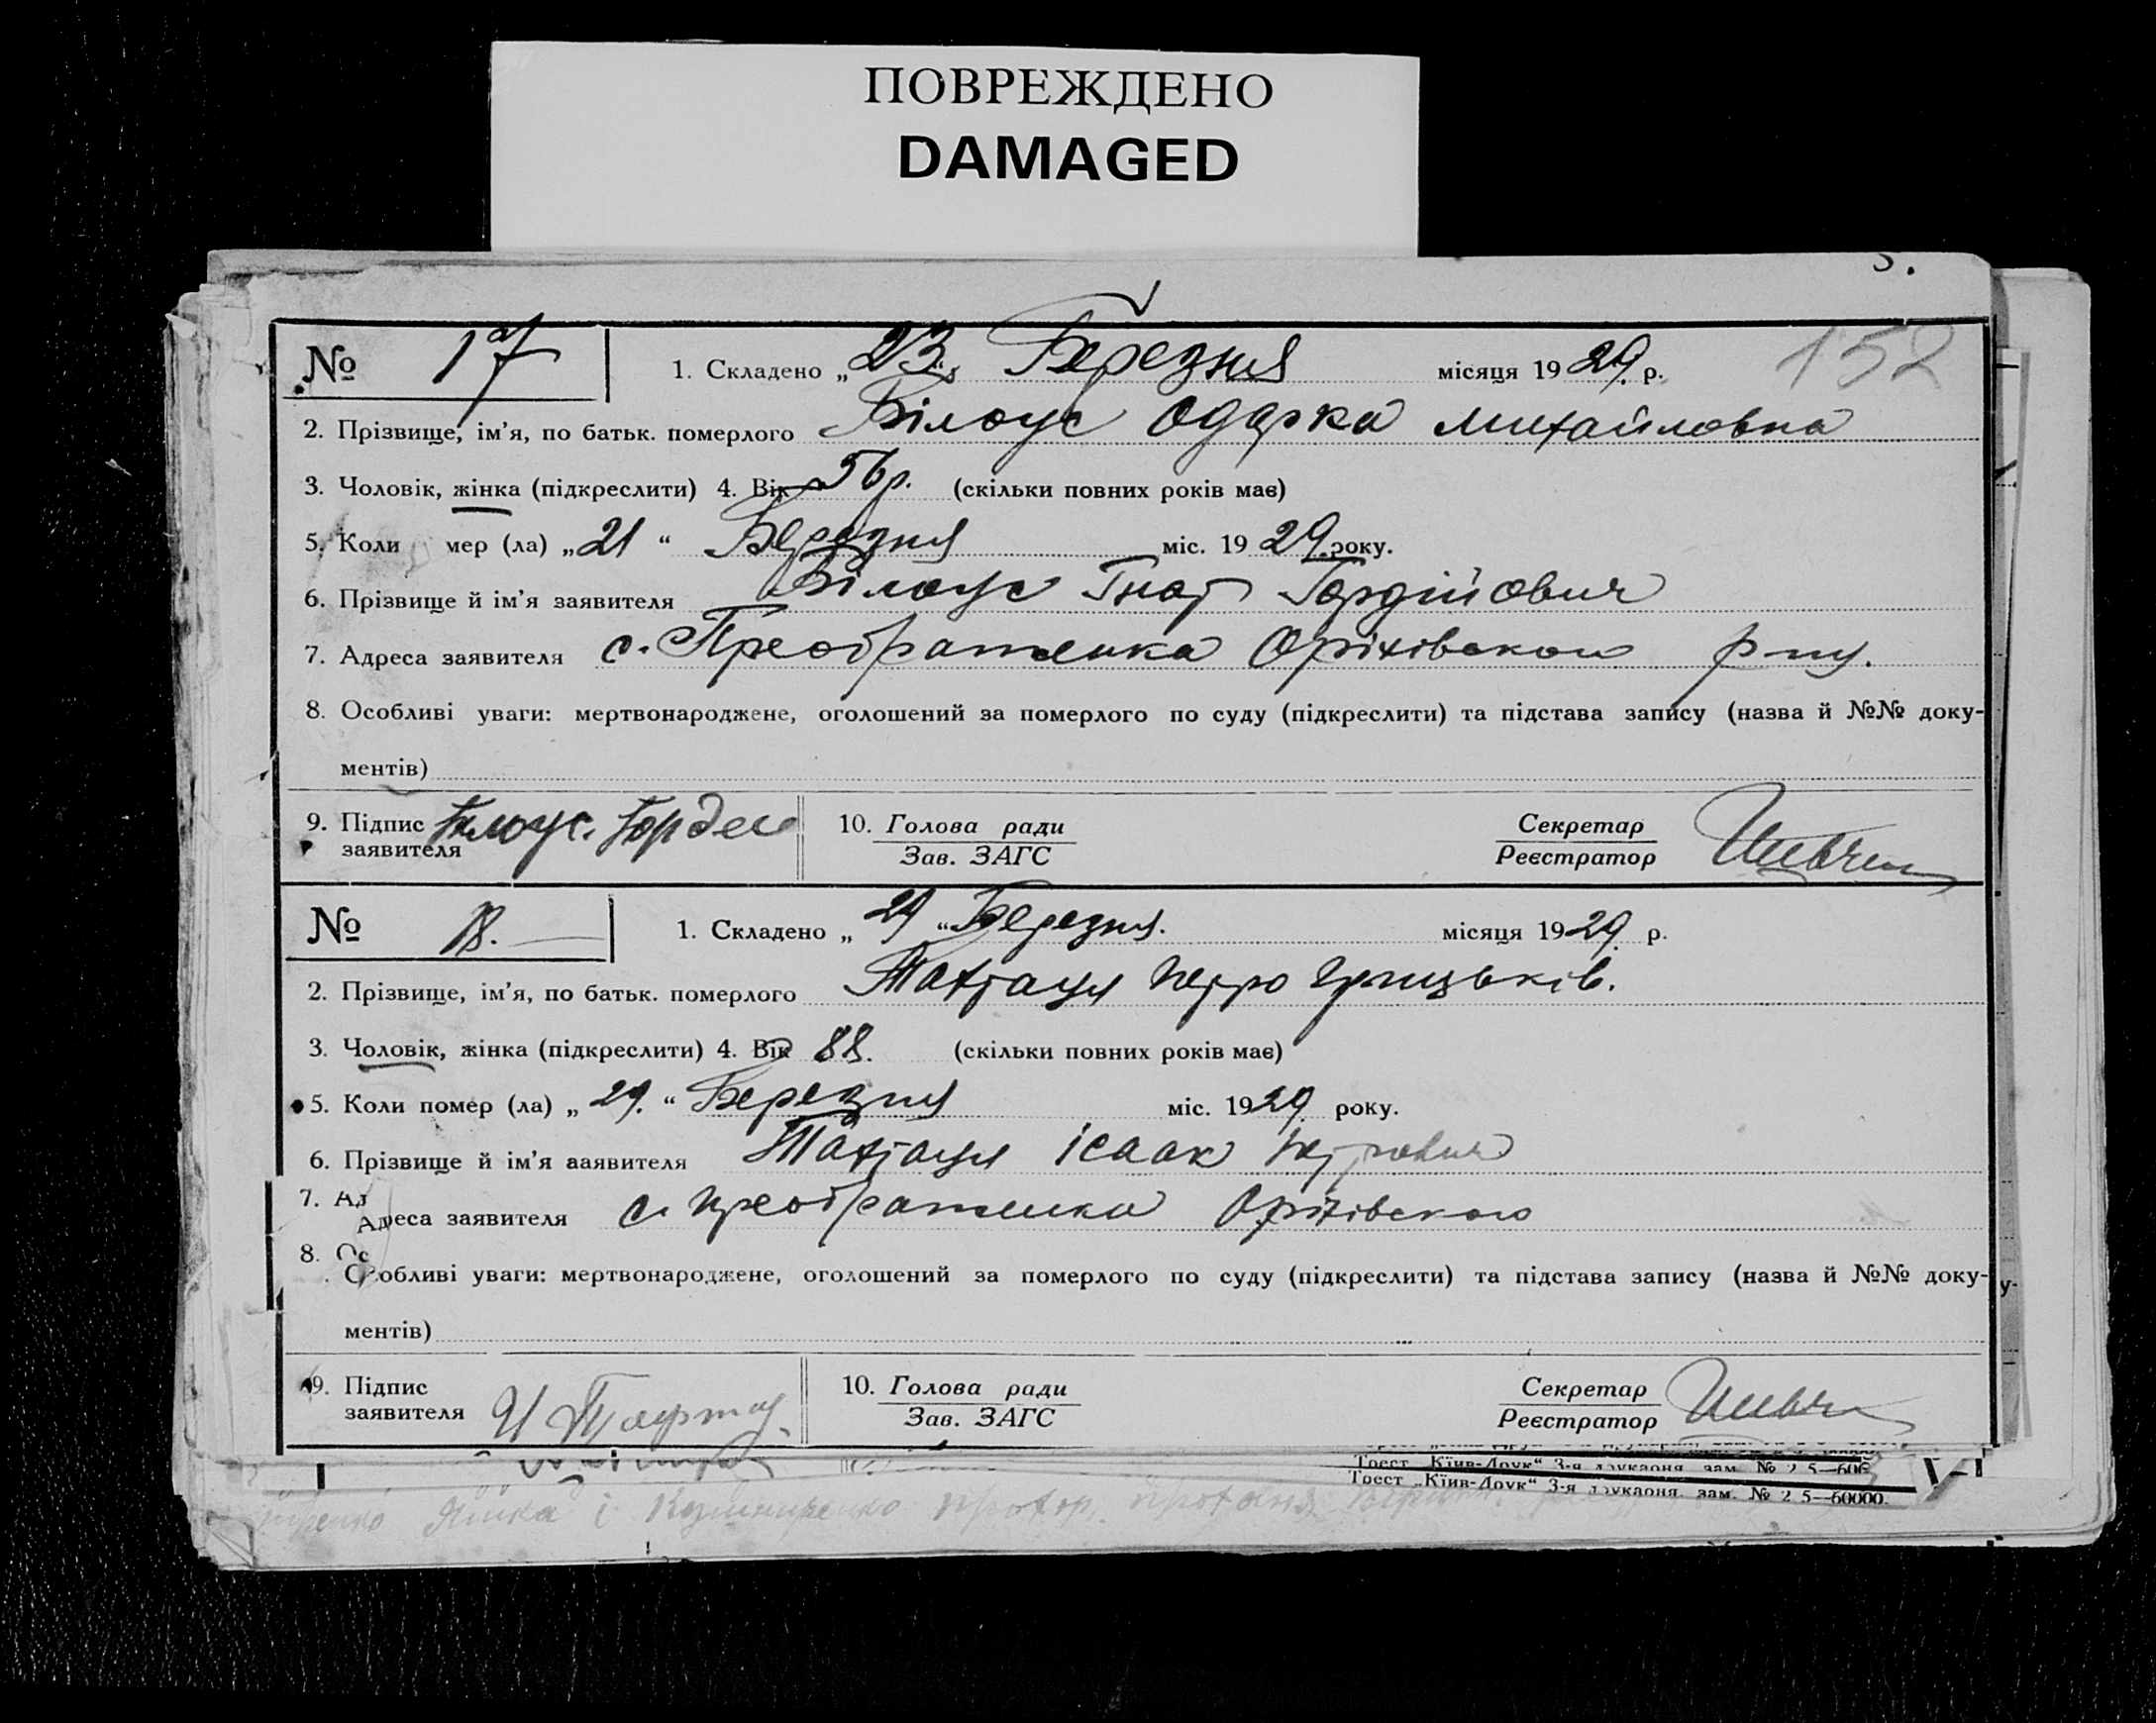 ПОВРЕЖДЕНО
DAMAGED
№ 17
1. Складено „23„ Березня місяця 1929 р.
152
2. Прізвище, ім'я, по батьк. померлого Білоус Одарка Михайловна
3. Чоловік, жінка (підкреслити) 4. Вік 56р. (скільки повних років має)
5. Коли мер (ла) „21“ Березня міс. 1929. року.
6. Прізвище й ім'я заявителя Білоус Гнат Гордійович
7. Адреса заявителя с. Преображенка Оріхівською р-ну.
8. Особливі уваги: мертвонароджене, оголошений за померлого по суду (підкреслити) та підстава запису (назва й №№ доку-
ментів)
9. Підпис заявителя Білоус.
10. Голова ради
Зав. ЗАГС
Секретар
Реєстратор
№ 18.
1. Складено „29“ Березня. місяця 1929 р.
2. Прізвище, ім'я, по батьк. померлого Петро Грицьків.
3. Чоловік, жінка (підкреслити) 4. Вік 88. (скільки повних років має)
5. Коли помер (ла) „29.“ Березня міс. 1929 року.
6. Прізвище й ім'я заявителя Ісаак Петрович
7. Ад
Адреса заявителя с. Преображенка Оріхівською
8. Ос
Особливі уваги: мертвонароджене, оголошений за померлого по суду (підкреслити) та підстава запису (назва й №№ доку-
ментів)
9. Підпис заявителя
10. Голова ради
Зав. ЗАГС
Секретар
Реєстратор
Трест „Київ-Друк“ 3-я друкарня, зам. № 2 5—60000.